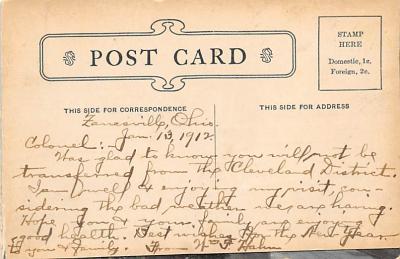 POST CARD
STAMP
HERE
Domestic, 1c.
Foreign, 2c.
THIS SIDE FOR CORRESPONDENCE
THIS SIDE FOR ADDRESS
Zanesville, Ohio
Jan. 13, 1912
Colonel:-
Was glad to know you will not be
transferred from the Cleveland District.
I am well & enjoying my visit, con-
sidering the bad weather we are having.
Hope you & your family are enjoying
good health. Best wishes for the New Year
to you & family. From Hahn